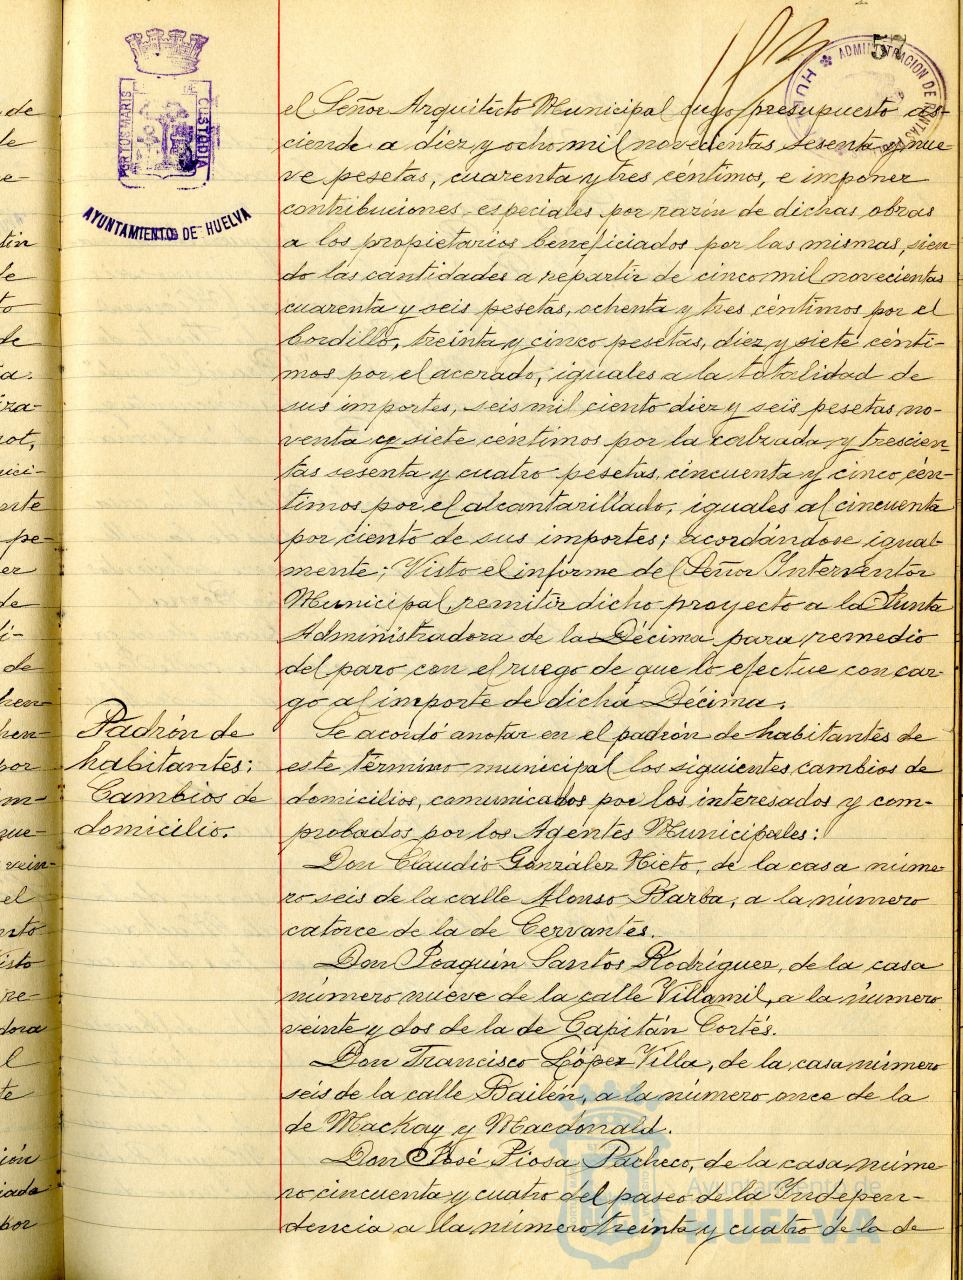 57
ADMINISTRACION DE RENTAS
HUELVA
PORTUS MARIS
CUSTODIA
AYUNTAMIENTO DE HUELVA
el Señor Arquitecto Municipal cuyo presupuesto as-
ciende a diez y ocho mil novecientas sesenta y nue-
ve pesetas, cuarenta y tres céntimos, e imponer
contribuciones especiales por razón de dichas obras
a los propietarios beneficiados por las mismas, sien-
do las cantidades a repartir de cinco mil novecientas
cuarenta y seis pesetas, ochenta y tres céntimos por el
bordillo, treinta y cinco pesetas, diez y siete cénti-
mos por el acerado, iguales a la totalidad de
sus importes, seis mil ciento diez y seis pesetas no-
venta y siete céntimos por la calzada y trescien-
tas sesenta y cuatro pesetas, cincuenta y cinco cén-
timos por el alcantarillado, iguales al cincuenta
por ciento de sus importes; acordándose igual-
mente; Visto el informe del Señor Interventor
Municipal, remitir dicho proyecto a la Junta
Administradora de la Décima para remedio
del paro con el ruego de que lo efectue con car-
go al importe de dicha Décima.
Padrón de
habitantes:
Cambios de
domicilio.
Se acordó anotar en el padrón de habitantes de
este término municipal los siguientes cambios de
domicilios, comunicados por los interesados y com-
probados por los Agentes Municipales:
Don Claudio González Nieto, de la casa núme-
ro seis de la calle Alonso Barba, a la número
catorce de la de Cervantes.
Don Joaquín Santos Rodríguez, de la casa
número nueve de la calle Villamil, a la número
veinte y dos de la de Capitán Cortés.
Don Francisco López Villa, de la casa número
seis de la calle Bailén, a la número once de la
de Mackay y Macdonald.
Don José Piosa Pacheco, de la casa núme-
ro cincuenta y cuatro del paseo de la Indepen-
dencia a la número treinta y cuatro de la de
Ayuntamiento de
HUELVA